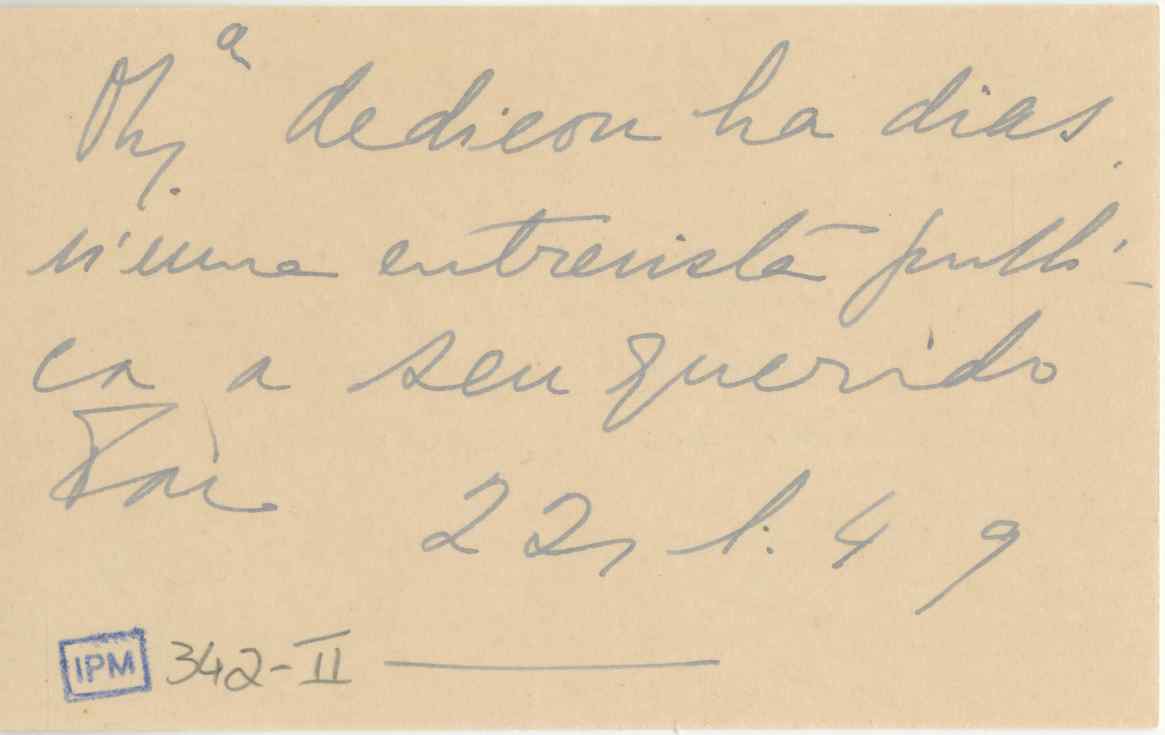 dedicou ha dias,
n'uma entrevista publi-
ca a seu querido
Pai.
22, 1. 4 9
IPM 342-II